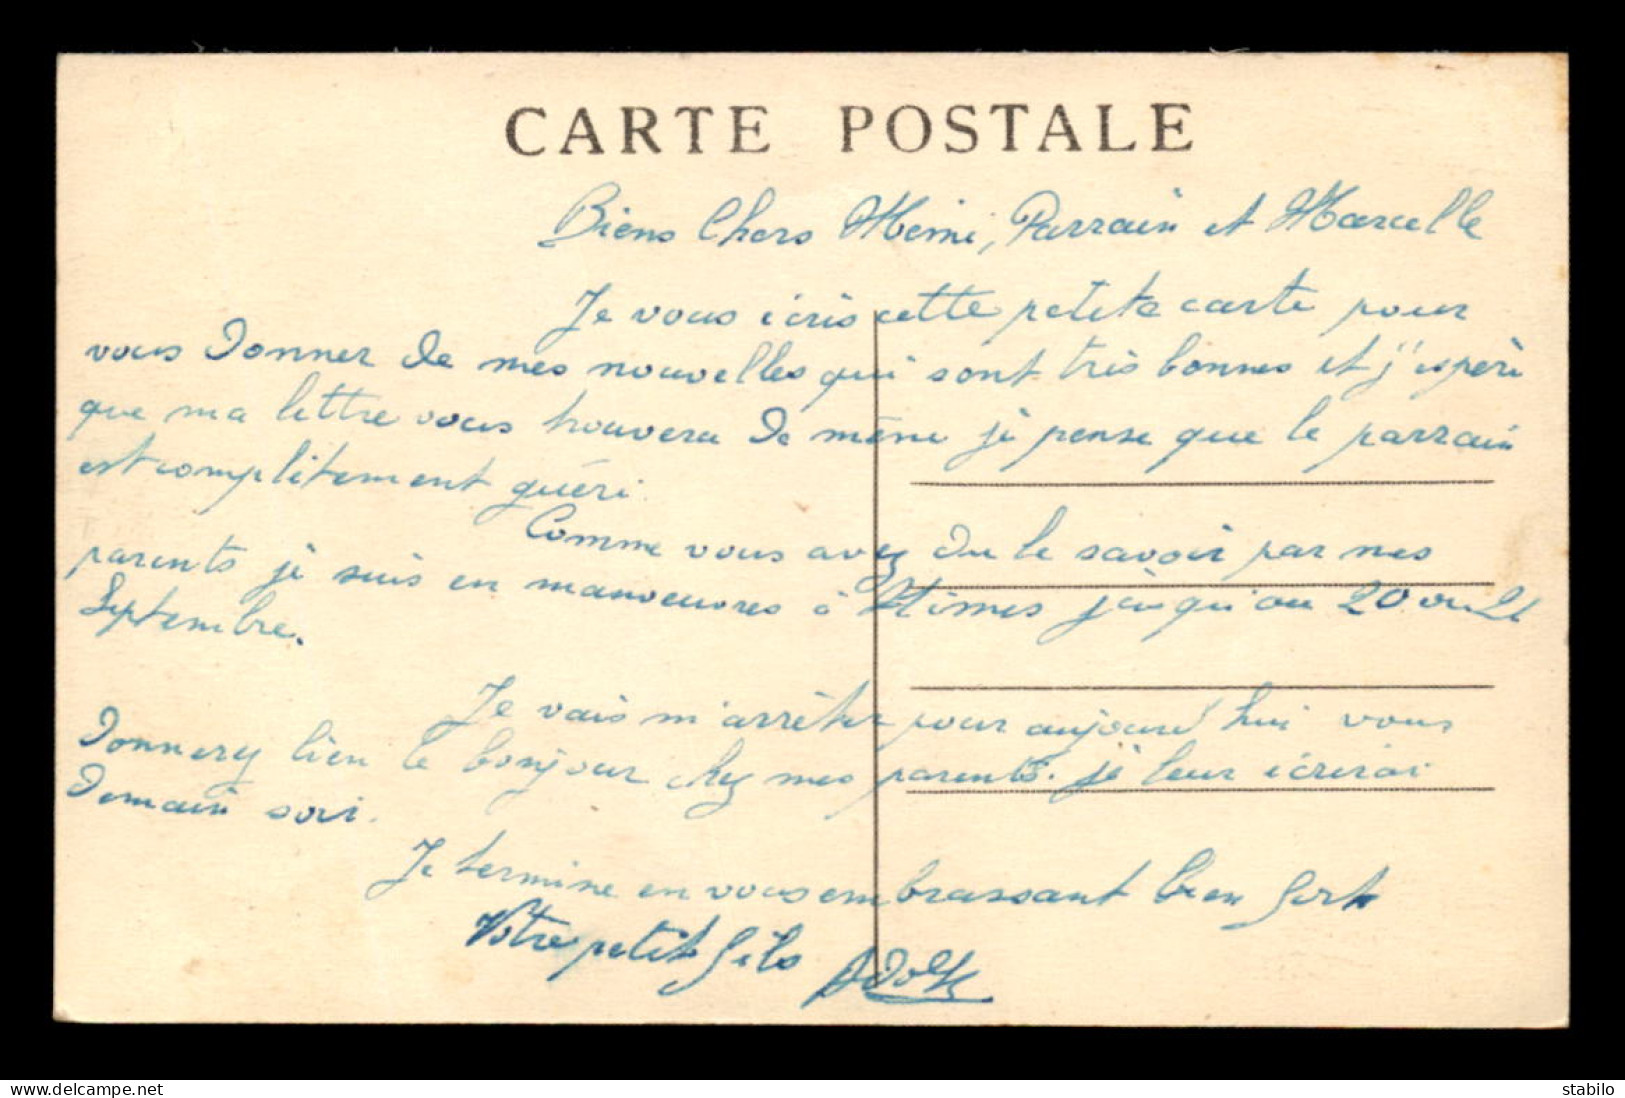 CARTE POSTALE
Biens Chers Mémé, Parrain et Marcelle
Je vous écris cette petite carte pour
vous donner de mes nouvelles qui sont très bonnes et j'espère
que ma lettre vous trouvera de même je pense que le parrain
est complètement guéri.
Comme vous avez du le savoir par mes
parents je suis en manoeuvres à Nîmes jusqu'au 20 ou 21
Septembre.
Je vais m'arrêter pour aujourd'hui vous
donnerez bien le bonjour chez mes parents. je leur écrirai
demain soir.
Je termine en vous embrassant bien fort
Votre petit fils
stabilo